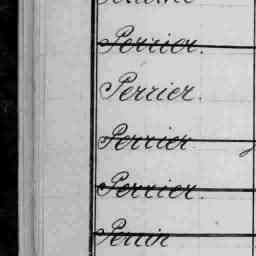 Perrier.
Perrier.
Perrier
Perrier.
Perrin